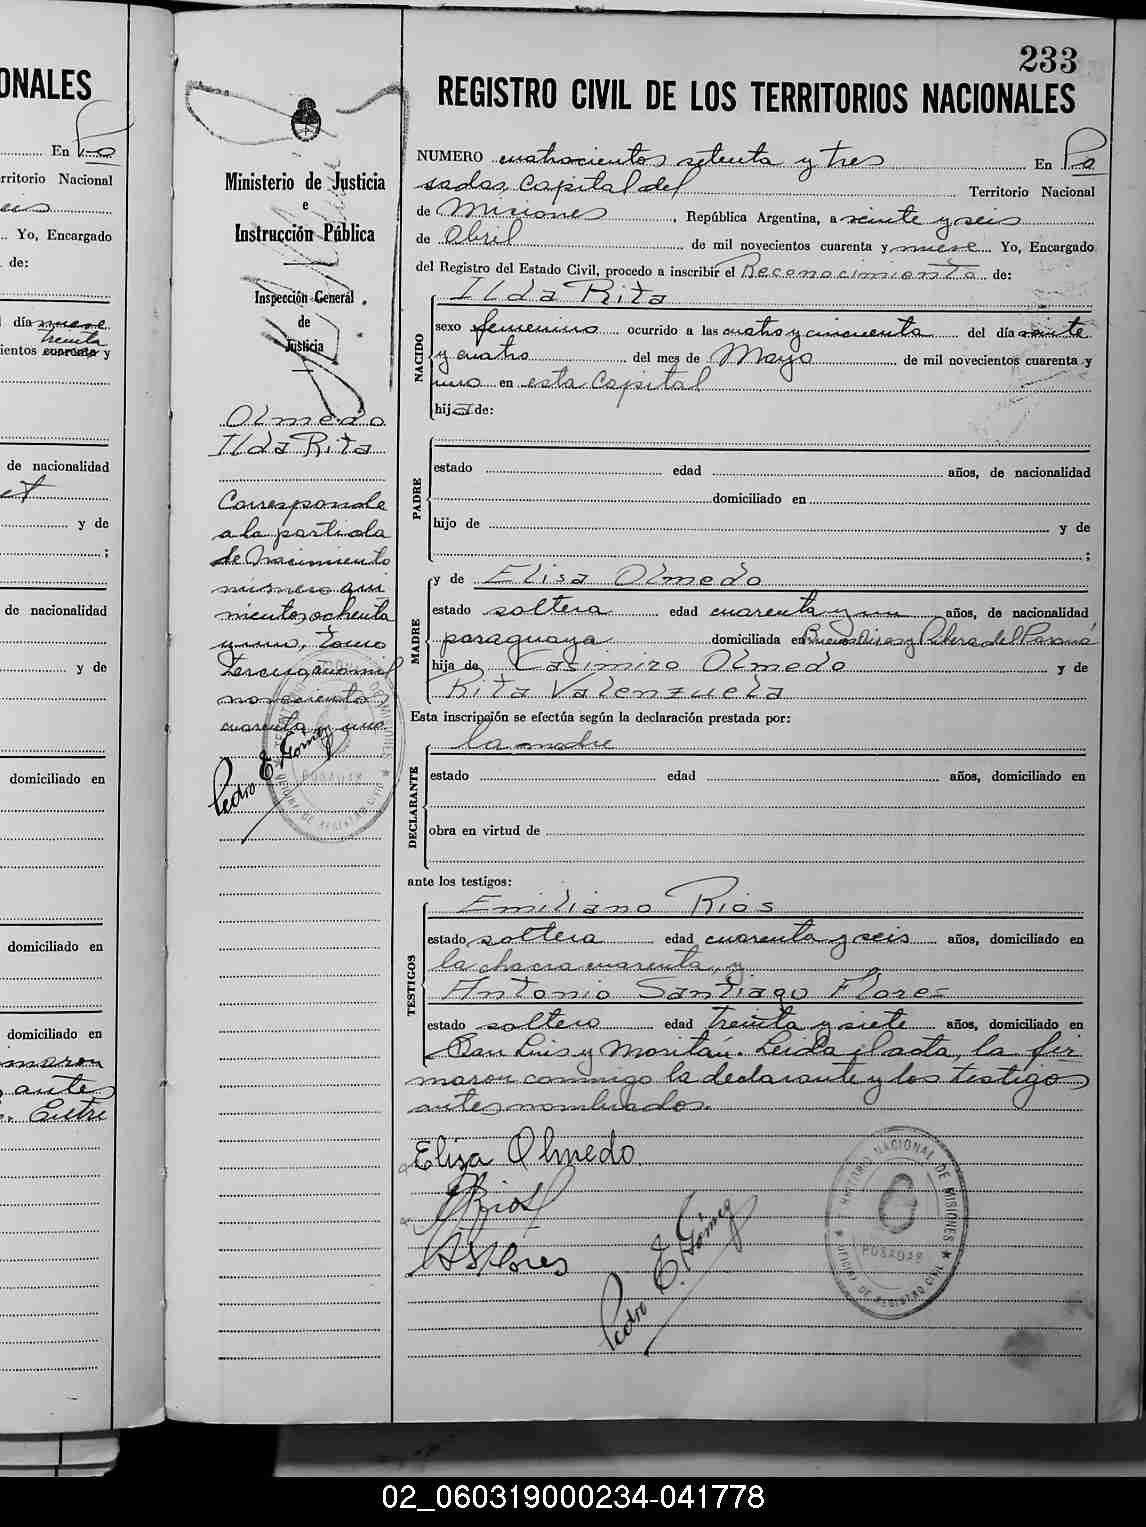 233
REGISTRO CIVIL DE LOS TERRITORIOS NACIONALES
NUMERO cuatrocientos setenta y tres En Po
sadas, Capital del Territorio Nacional
de Misiones, República Argentina, a veinte y seis
de Abril de mil novecientos cuarenta y nueve Yo, Encargado
del Registro del Estado Civil, procedo a inscribir el Reconocimiento de:
NACIDO
Ilda Rita
sexo femenino ocurrido a las cuatro y cincuenta del día veinte
y cuatro del mes de Mayo de mil novecientos cuarenta y
uno en esta Capital
hija de:
PADRE
estado edad años, de nacionalidad
domiciliado en
hijo de y de
;
MADRE
y de Elisa Olmedo
estado soltera edad cuarenta y un años, de nacionalidad
paraguaya domiciliada en Buenos Aires y Ribera del Paraná
hija de Casimiro Olmedo y de
Rita Valenzuela
Esta inscripción se efectúa según la declaración prestada por:
DECLARANTE
la madre
estado edad años, domiciliado en
obra en virtud de
ante los testigos:
TESTIGOS
Emiliano Rios
estado soltero edad cuarenta y seis años, domiciliado en
la chacra cuarenta, y
Antonio Santiago Flores
estado soltero edad treinta y siete años, domiciliado en
San Luis y Moritán. Leida el acta, la fir
maron conmigo la declarante y los testigos
antes nombrados.
Elisa Olmedo
ERios
ASFlores
Pedro E. Gómez
TERRITORIO NACIONAL DE MISIONES
POSADAS
OFICINA DE REGISTRO CIVIL
Ministerio de Justicia
e
Instrucción Pública
Inspección General
de
Justicia
Olmedo
Ilda Rita
Corresponde
a la partida
de Nacimiento
número qui
nientos ochenta
y uno, Tomo
tercero año mil
novecientos
cuarenta y uno
Pedro E. Gómez
POSADAS
OFICINA DE REGISTRO CIVIL
ONALES
En Po
rritorio Nacional
Yo, Encargado
de:
día nueve
treinta
ientos cuarenta y
de nacionalidad
y de
;
de nacionalidad
y de
domiciliado en
domiciliado en
domiciliado en
maron
antes
Entre
02_060319000234-041778